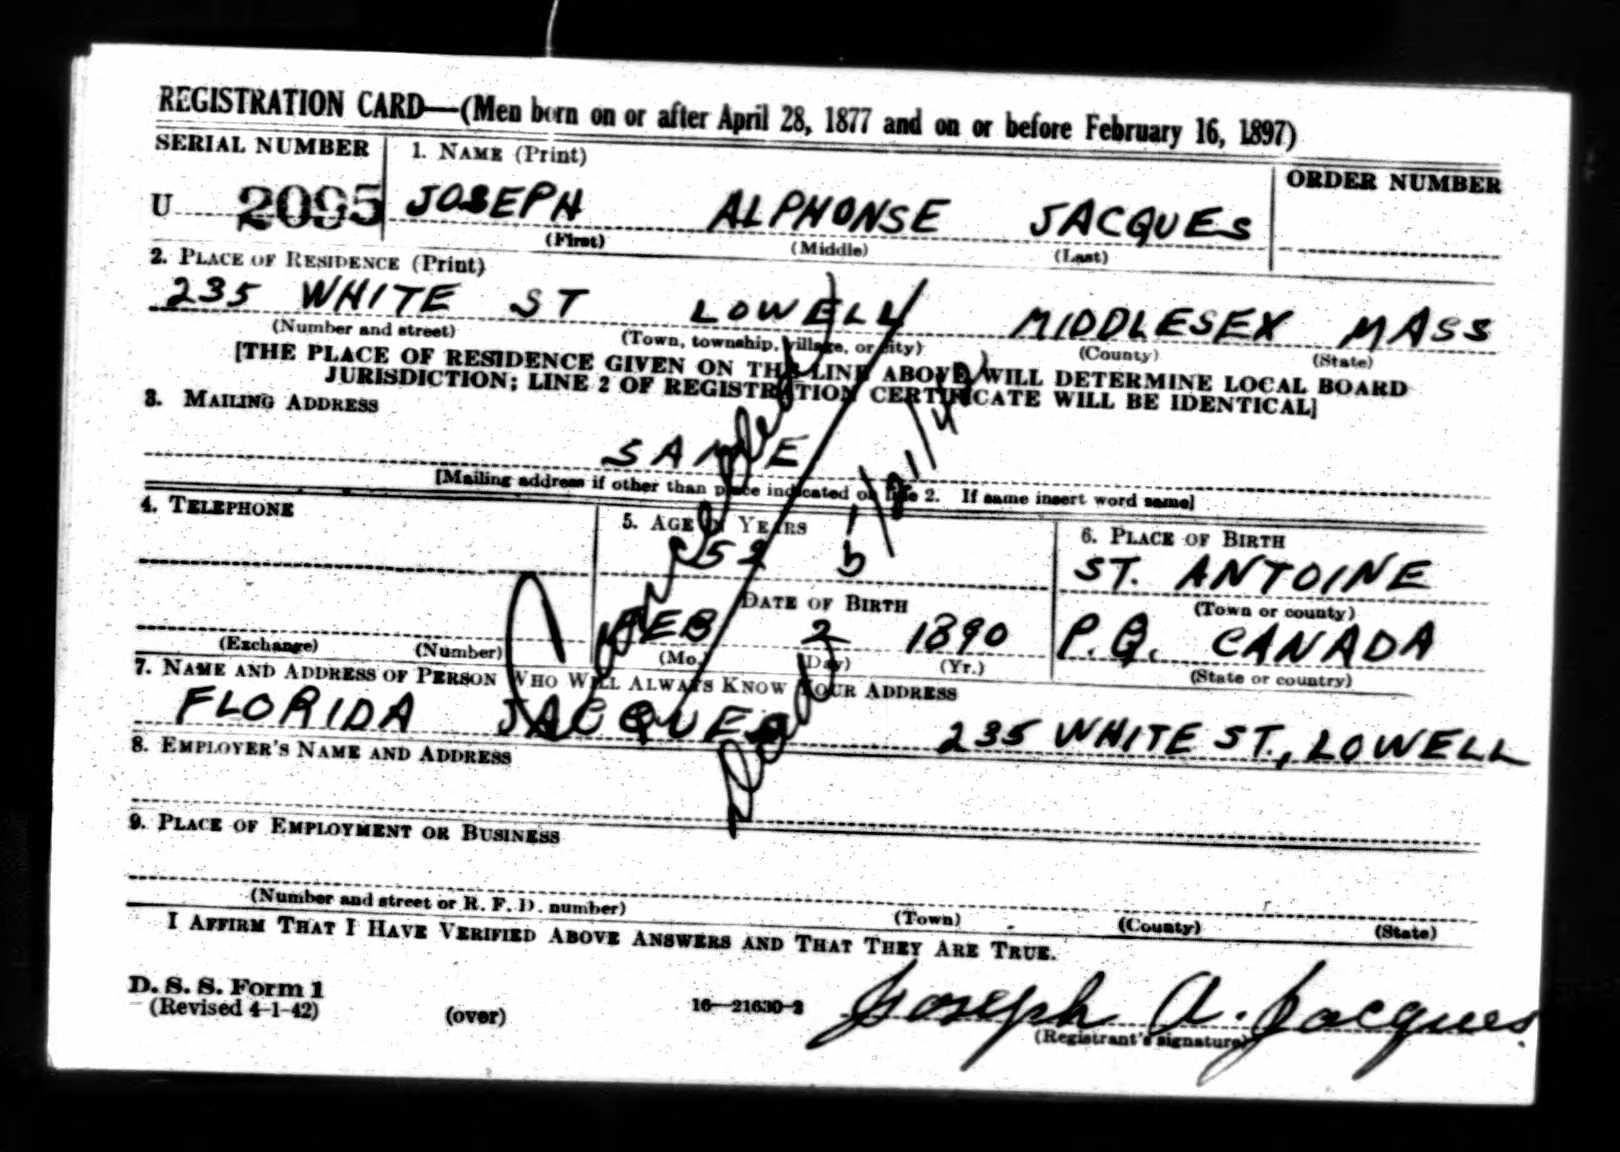 REGISTRATION CARD—(Men born on or after April 28, 1877 and on or before February 16, 1897)
SERIAL NUMBER
U 2095
1. NAME (Print)
JOSEPH ALPHONSE JACQUES
(First) (Middle) (Last)
ORDER NUMBER
2. PLACE OF RESIDENCE (Print)
235 WHITE ST LOWELL MIDDLESEX MASS
(Number and street) (Town, township, village, or city) (County) (State)
[THE PLACE OF RESIDENCE GIVEN ON THE LINE ABOVE WILL DETERMINE LOCAL BOARD
JURISDICTION; LINE 2 OF REGISTRATION CERTIFICATE WILL BE IDENTICAL]
3. MAILING ADDRESS
SAME
[Mailing address if other than place indicated on line 2. If same insert word same]
4. TELEPHONE
(Exchange) (Number)
5. AGE IN YEARS
52
DATE OF BIRTH
FEB 2 1890
(Mo.) (Day) (Yr.)
6. PLACE OF BIRTH
ST. ANTOINE
(Town or county)
P.Q. CANADA
(State or country)
7. NAME AND ADDRESS OF PERSON WHO WILL ALWAYS KNOW YOUR ADDRESS
FLORIDA JACQUES 235 WHITE ST., LOWELL
8. EMPLOYER'S NAME AND ADDRESS
9. PLACE OF EMPLOYMENT OR BUSINESS
(Number and street or R. F. D. number) (Town) (County) (State)
I AFFIRM THAT I HAVE VERIFIED ABOVE ANSWERS AND THAT THEY ARE TRUE.
D. S. S. Form 1
(Revised 4-1-42) (over) 16—21630-2
Joseph A. Jacques
(Registrant's signature)
Cancelled
Dead